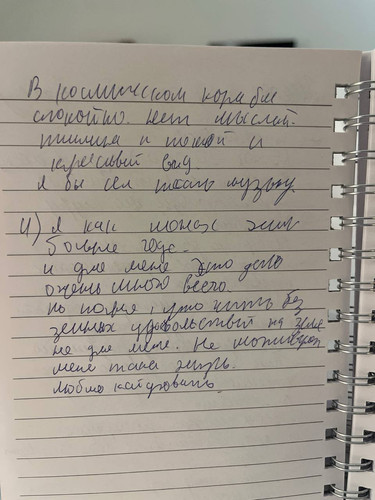 В космическом корабле
спокойно. нет мыслей.
тишина и покой и
красивый вид
я бы сел писать музыку.
4) Я как монах жил
больше года.
и для меня это дало
очень много всего.
Но понял, что жить без
земных удовольствий на земле
не для меня. Не мотивирует
меня такая жизнь.
люблю кайфовать.